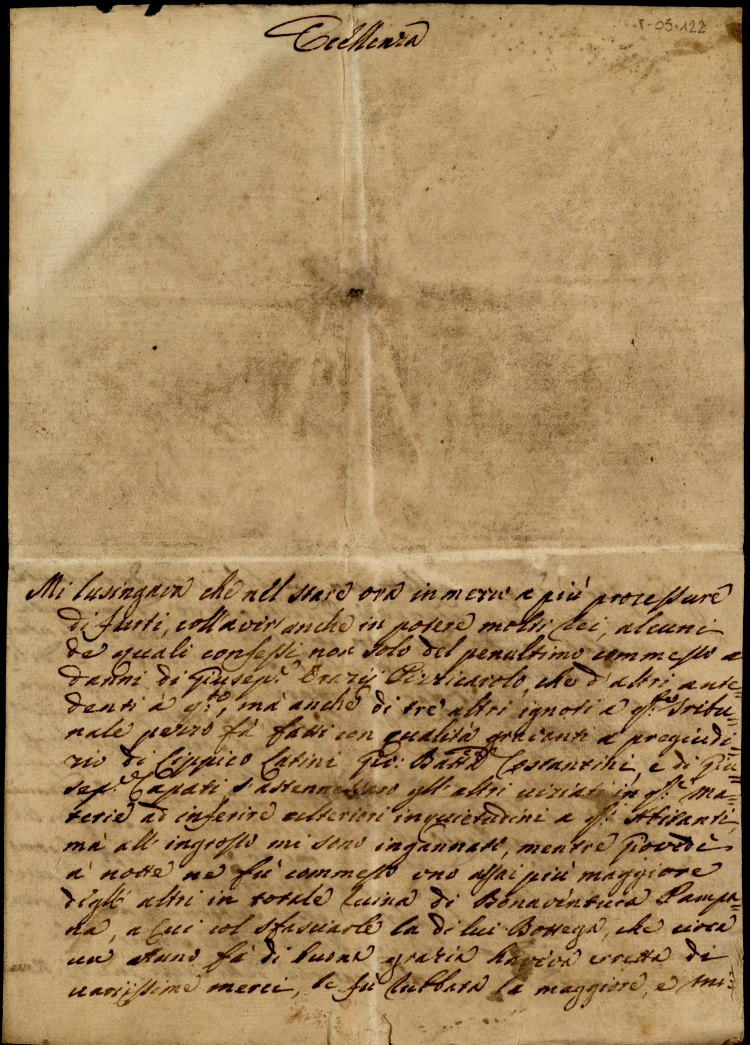 8-05-122
Eccellenza
Mi lusingava che nell stare ora in mezzo a più processure
di furti, coll'aver anche in potere molti Rei, alcuni
de quali confessi non solo del penultimo commesso a
danni di Giusep.e Pizzicarolo, che d'altri ante-
denti à q.to, mà anche di trè altri ignoti a q.to Tribu-
nale pezzo fà fatti con qualità gravanti a pregiudi-
zio di Cippico Latini Gio: Batta Costantini, e di Giu-
sep.e Capati, s'astenessero gl'altri viziati in q.te Ma-
terie ad inferire ulteriori inquietudini a q.ti Abitanti,
mà all'ingrosso mi sono ingannato, mentre Giovedì
à notte ne fù commesso uno assai più maggiore
degl'altri in totale ruina di Bonaventura Pampa-
na, a cui col sfasciarle la di lui Bottega, che circa
un Anno fà di buona grazia haveva eretta di
variissime merci, le fù rubbata la maggiore, e mi-